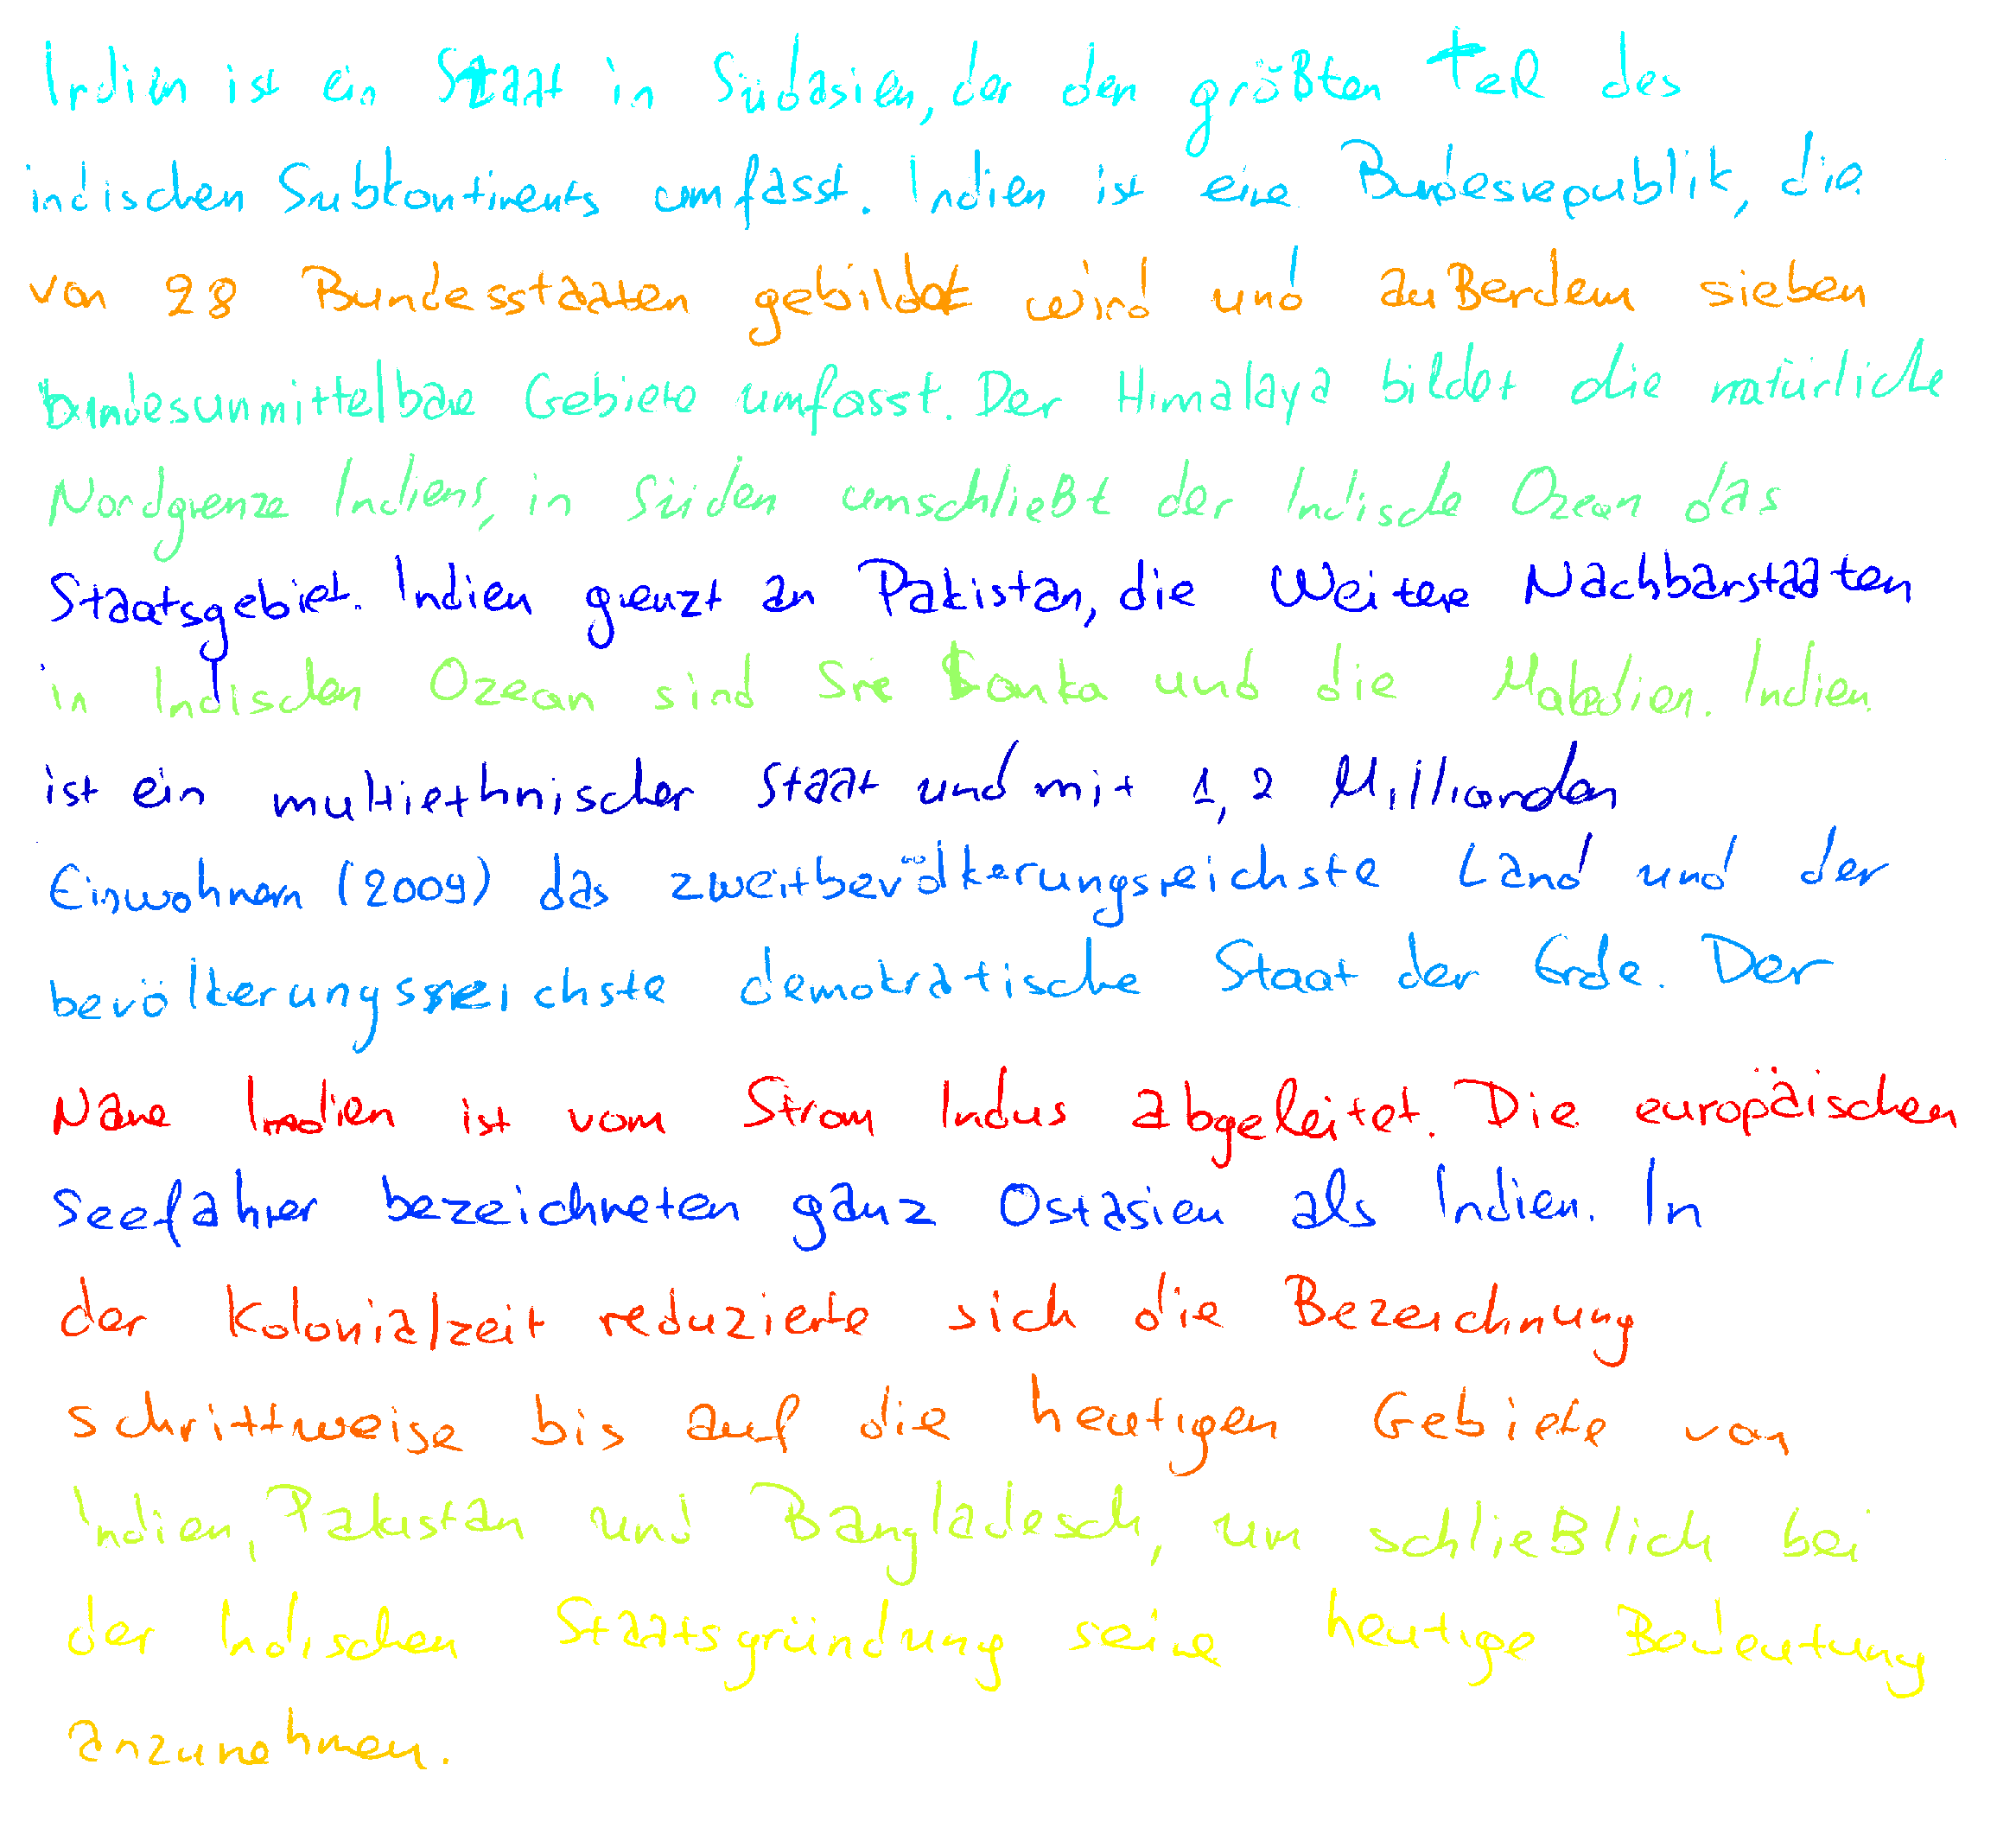 Indien ist ein Staat in Südasien, der den größten Teil des
indischen Subkontinents umfasst. Indien ist eine Bundesrepublik, die
von 28 Bundesstaaten gebildet wird und außerdem sieben
bundesunmittelbare Gebiete umfasst. Der Himalaya bildet die natürliche
Nordgrenze Indiens, in Süden umschließt der Indische Ozean das
Staatsgebiet. Indien grenzt an Pakistan, die Weitere Nachbarstaaten
in Indischen Ozean sind Sri Lanka und die Malediven. Indien
ist ein multiethnischer Staat und mit 1,2 Milliarden
Einwohnern (2009) das zweitbevölkerungsreichste Land und der
bevölkerungsreichste demokratische Staat der Erde. Der
Name Indien ist vom Strom Indus abgeleitet. Die europäischen
Seefahrer bezeichneten ganz Ostasien als Indien. In
der Kolonialzeit reduzierte sich die Bezeichnung
schrittweise bis auf die heutigen Gebiete von
Indien, Pakistan und Bangladesch, um schließlich bei
der Indischen Staatsgründung seine heutige Bedeutung
anzunehmen.